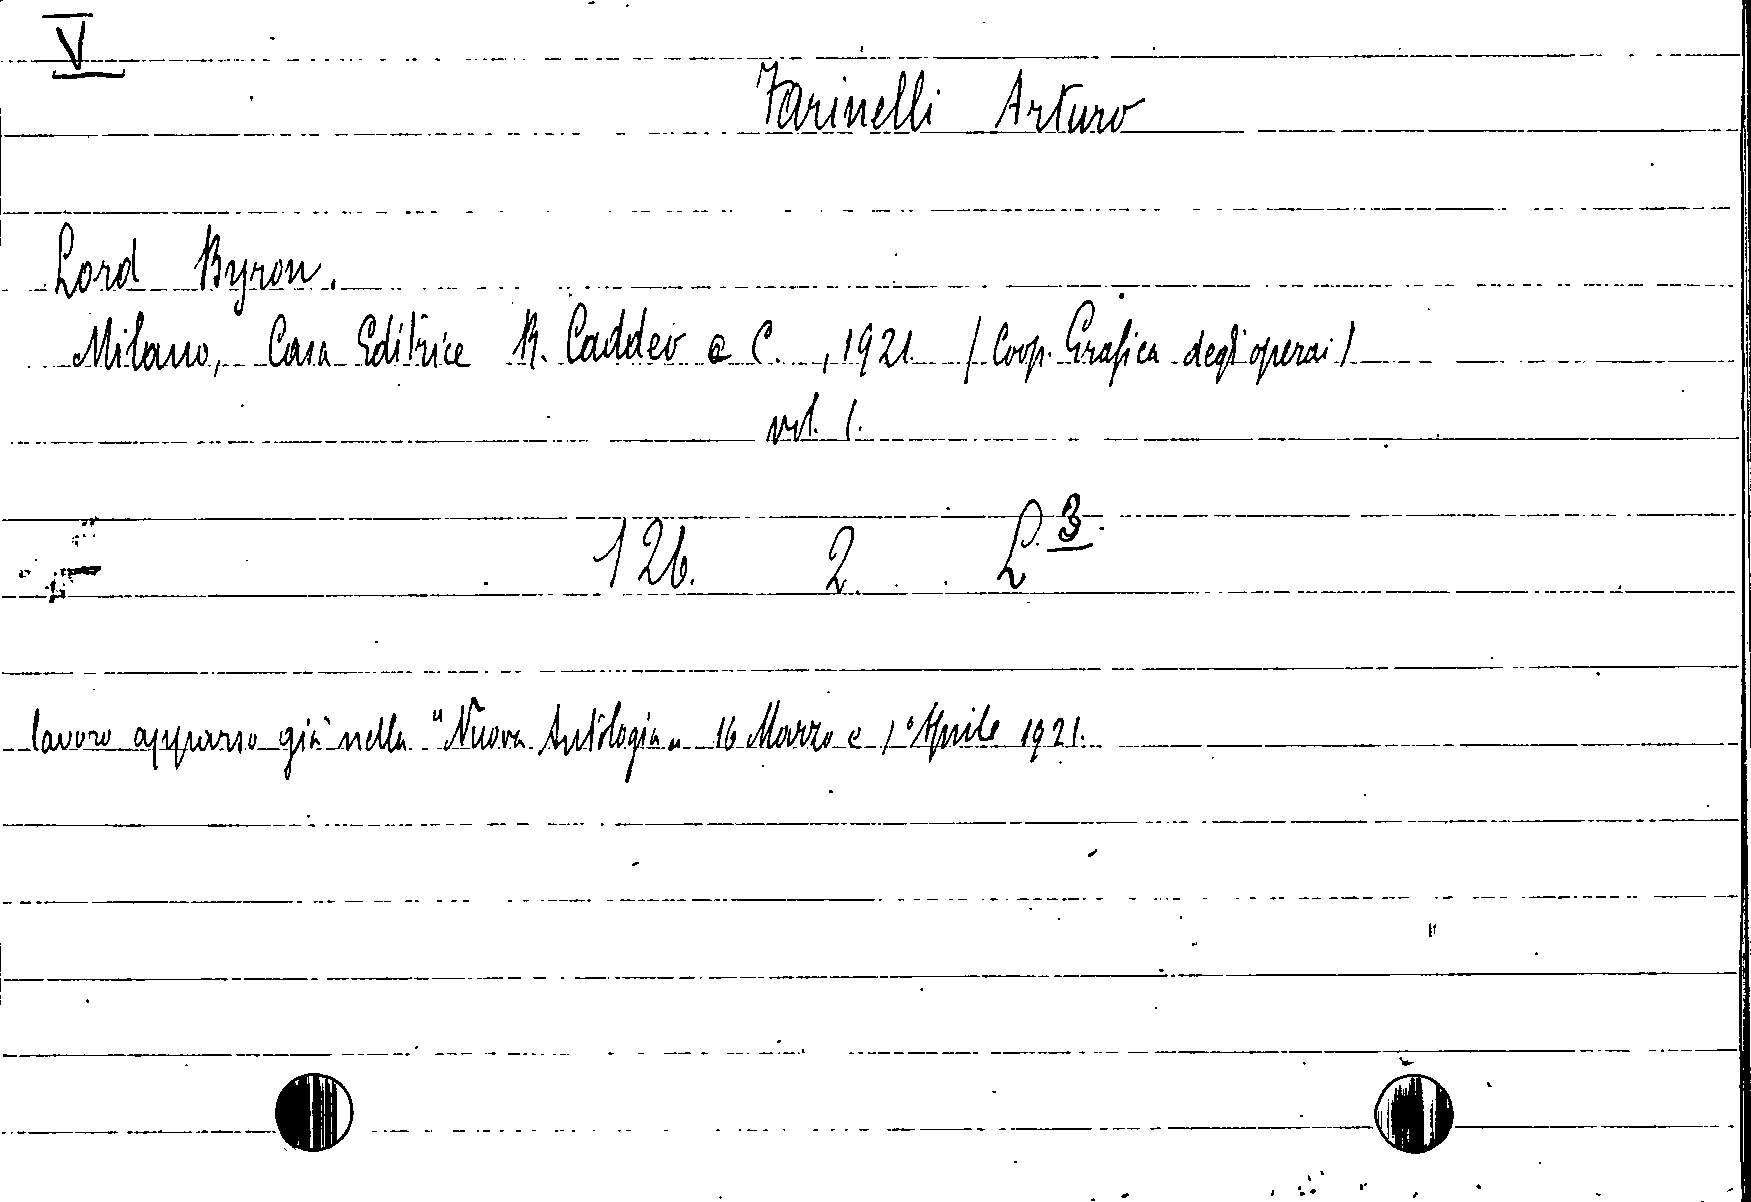 V
Farinelli Arturo
Lord Byron.
Milano, Casa Editrice R. Caddeo e C., 1921. (Coop. Grafica degl'operai)
vol. 1.
126. 2. L.3.
lavoro apparso già nella "Nuova Antologia„ 16 Marzo e 1° Aprile 1921.